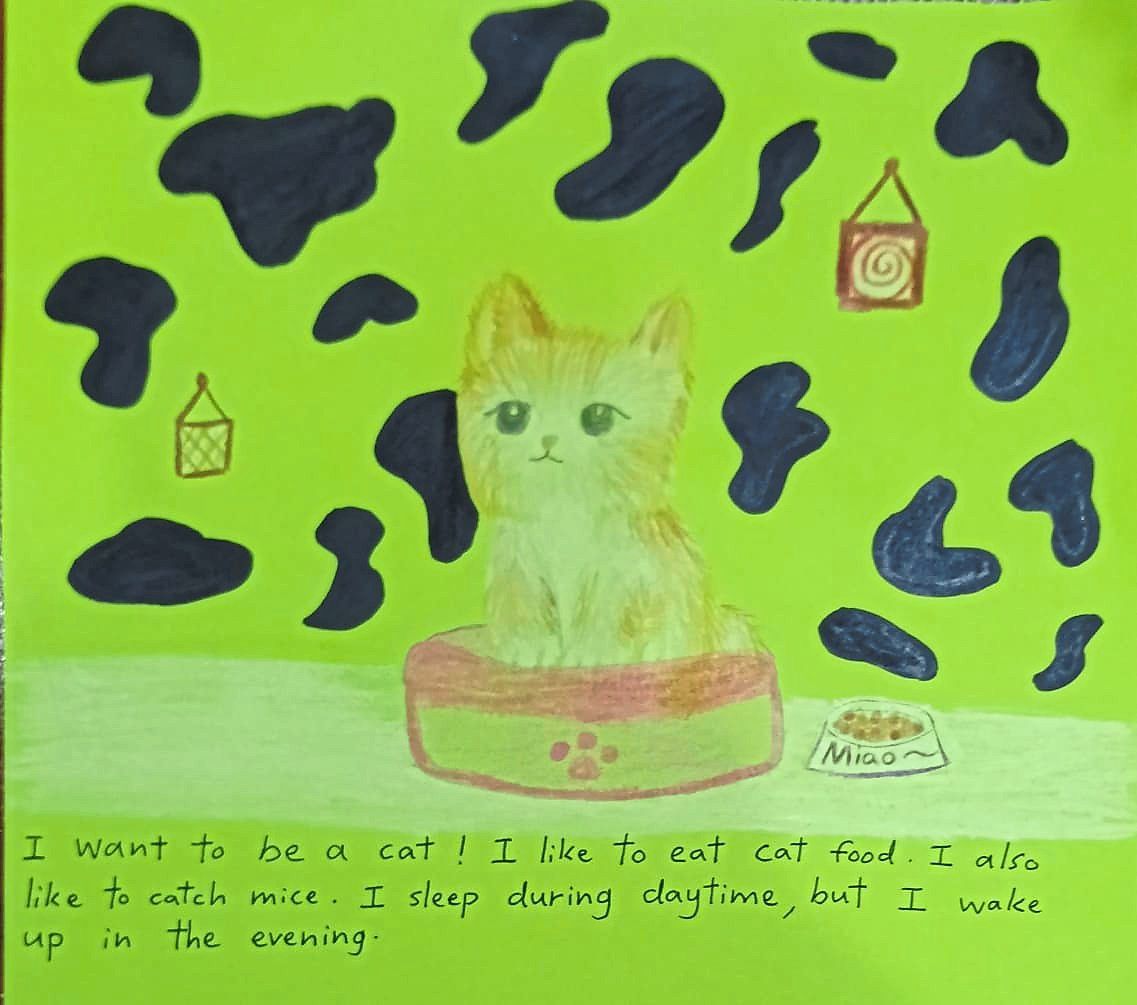 Miao~
I want to be a cat! I like to eat cat food. I also
like to catch mice. I sleep during daytime, but I wake
up in the evening.